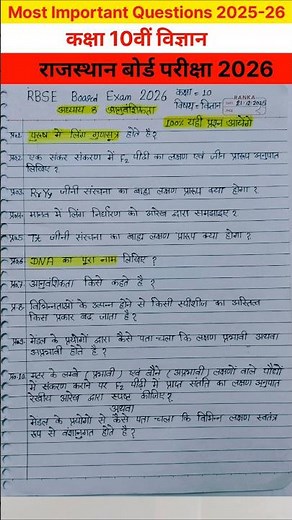 Most Important Questions 2025-26
कक्षा 10वीं विज्ञान
राजस्थान बोर्ड परीक्षा 2026
RBSE Board Exam 2026 कक्षा = 10
विषय = विज्ञान
अध्याय 8 आनुवंशिकता 100% यही प्रश्न आयेंगे
प्र०1. पुरुष में लिंग गुणसूत्र होते है?
प्र०2. एक संकर संकरण में F₂ पीढ़ी का लक्षण एवं जीन प्रारूप अनुपात
लिखिए?
प्र०3. RrYy जीनी संरचना का बाह्य लक्षण प्रारूप क्या होगा?
प्र०4. मानव में लिंग निर्धारण को आरेख द्वारा समझाइए?
प्र०5 Tt जीनी संरचना का बाह्य लक्षण प्रारूप क्या होगा?
प्र०6 DNA का पूरा नाम लिखिए?
प्र०7. आनुवंशिकता किसे कहते है?
प्र०8. विभिन्नताओं के उत्पन्न होने से किसी स्पीशीज का अस्तित्व
किस प्रकार बढ़ जाता है?
प्र०9. मेंडल के प्रयोगों द्वारा कैसे पता चला कि लक्षण प्रभावी अथवा
अप्रभावी होते है?
प्र०10. मटर के लम्बे (प्रभावी) एवं बौने (अप्रभावी) लक्षणों वाले पौधों
में संकरण कराने पर F₂ पीढ़ी में प्राप्त संतति का लक्षण अनुपात
रेखीय आरेख द्वारा स्पष्ट कीजिए?
अथवा
मेंडल के प्रयोगों से कैसे पता चला कि विभिन्न लक्षण स्वतंत्र
रूप से वंशानुगत होते है?